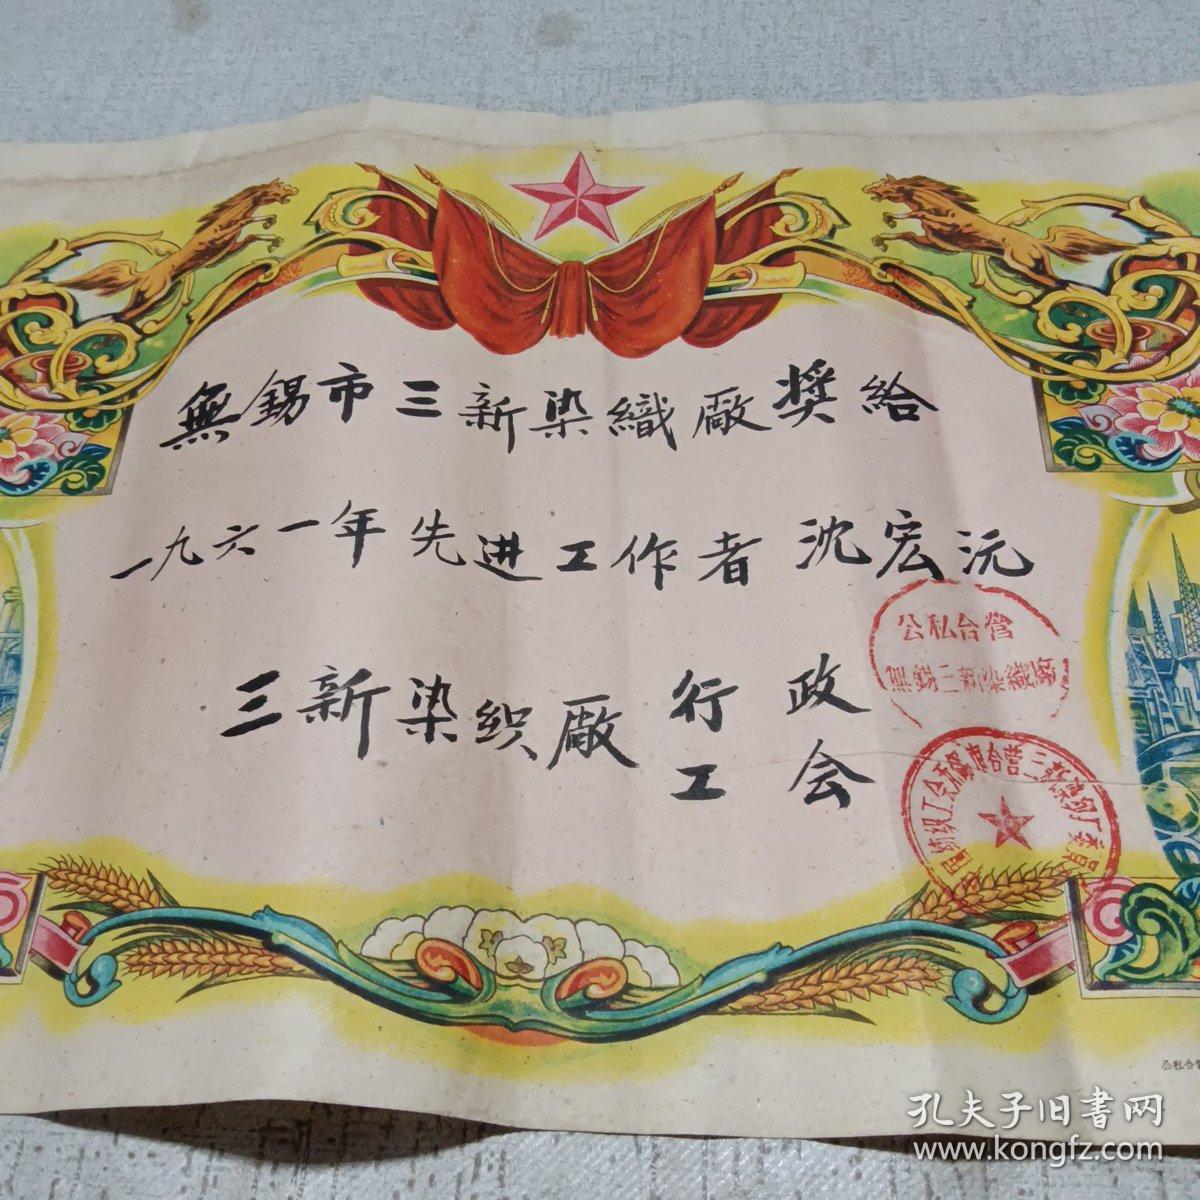 無錫市三新染織廠奬給
一九六一年先进工作者沈宏沅
三新染织廠行政
工会
公私合营
無錫三新染織廠
纺织工会无锡
合营三新染织厂委员
公私合营
孔夫子旧書网
www.kongfz.com